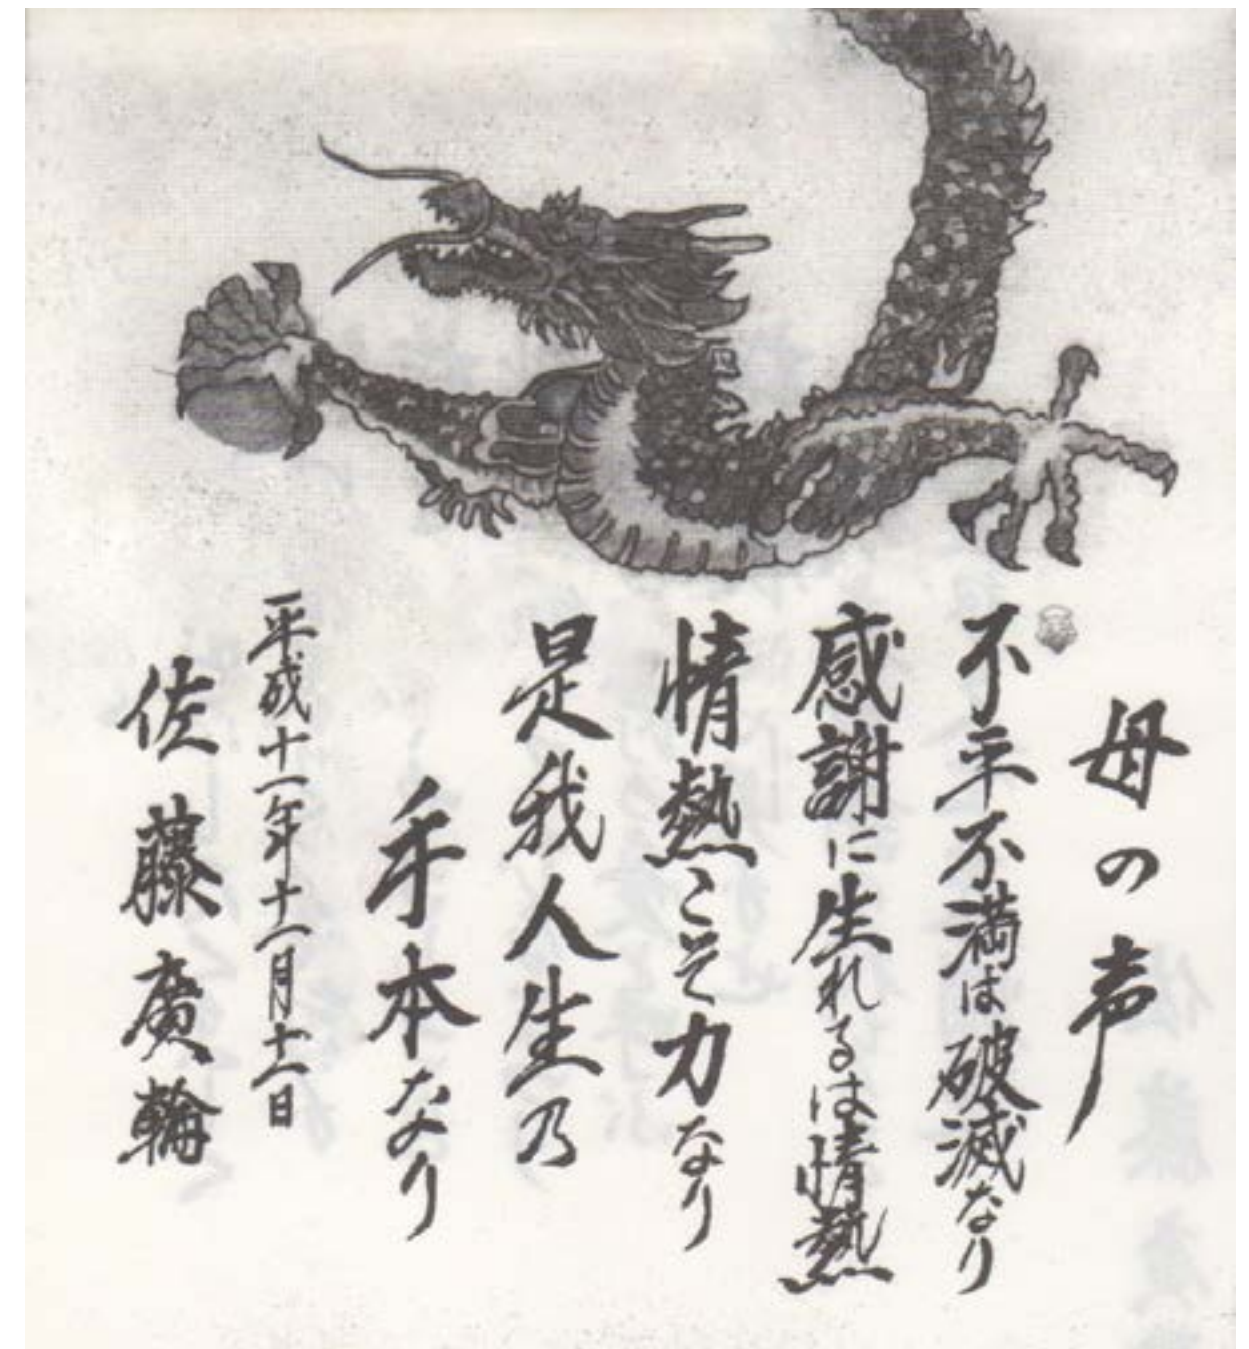 母の声
不平不満は破滅なり
感謝に生れるは情熱
情熱こそ力なり
是我人生乃
手本なり
平成十一年十一月十一日
佐藤廣輪